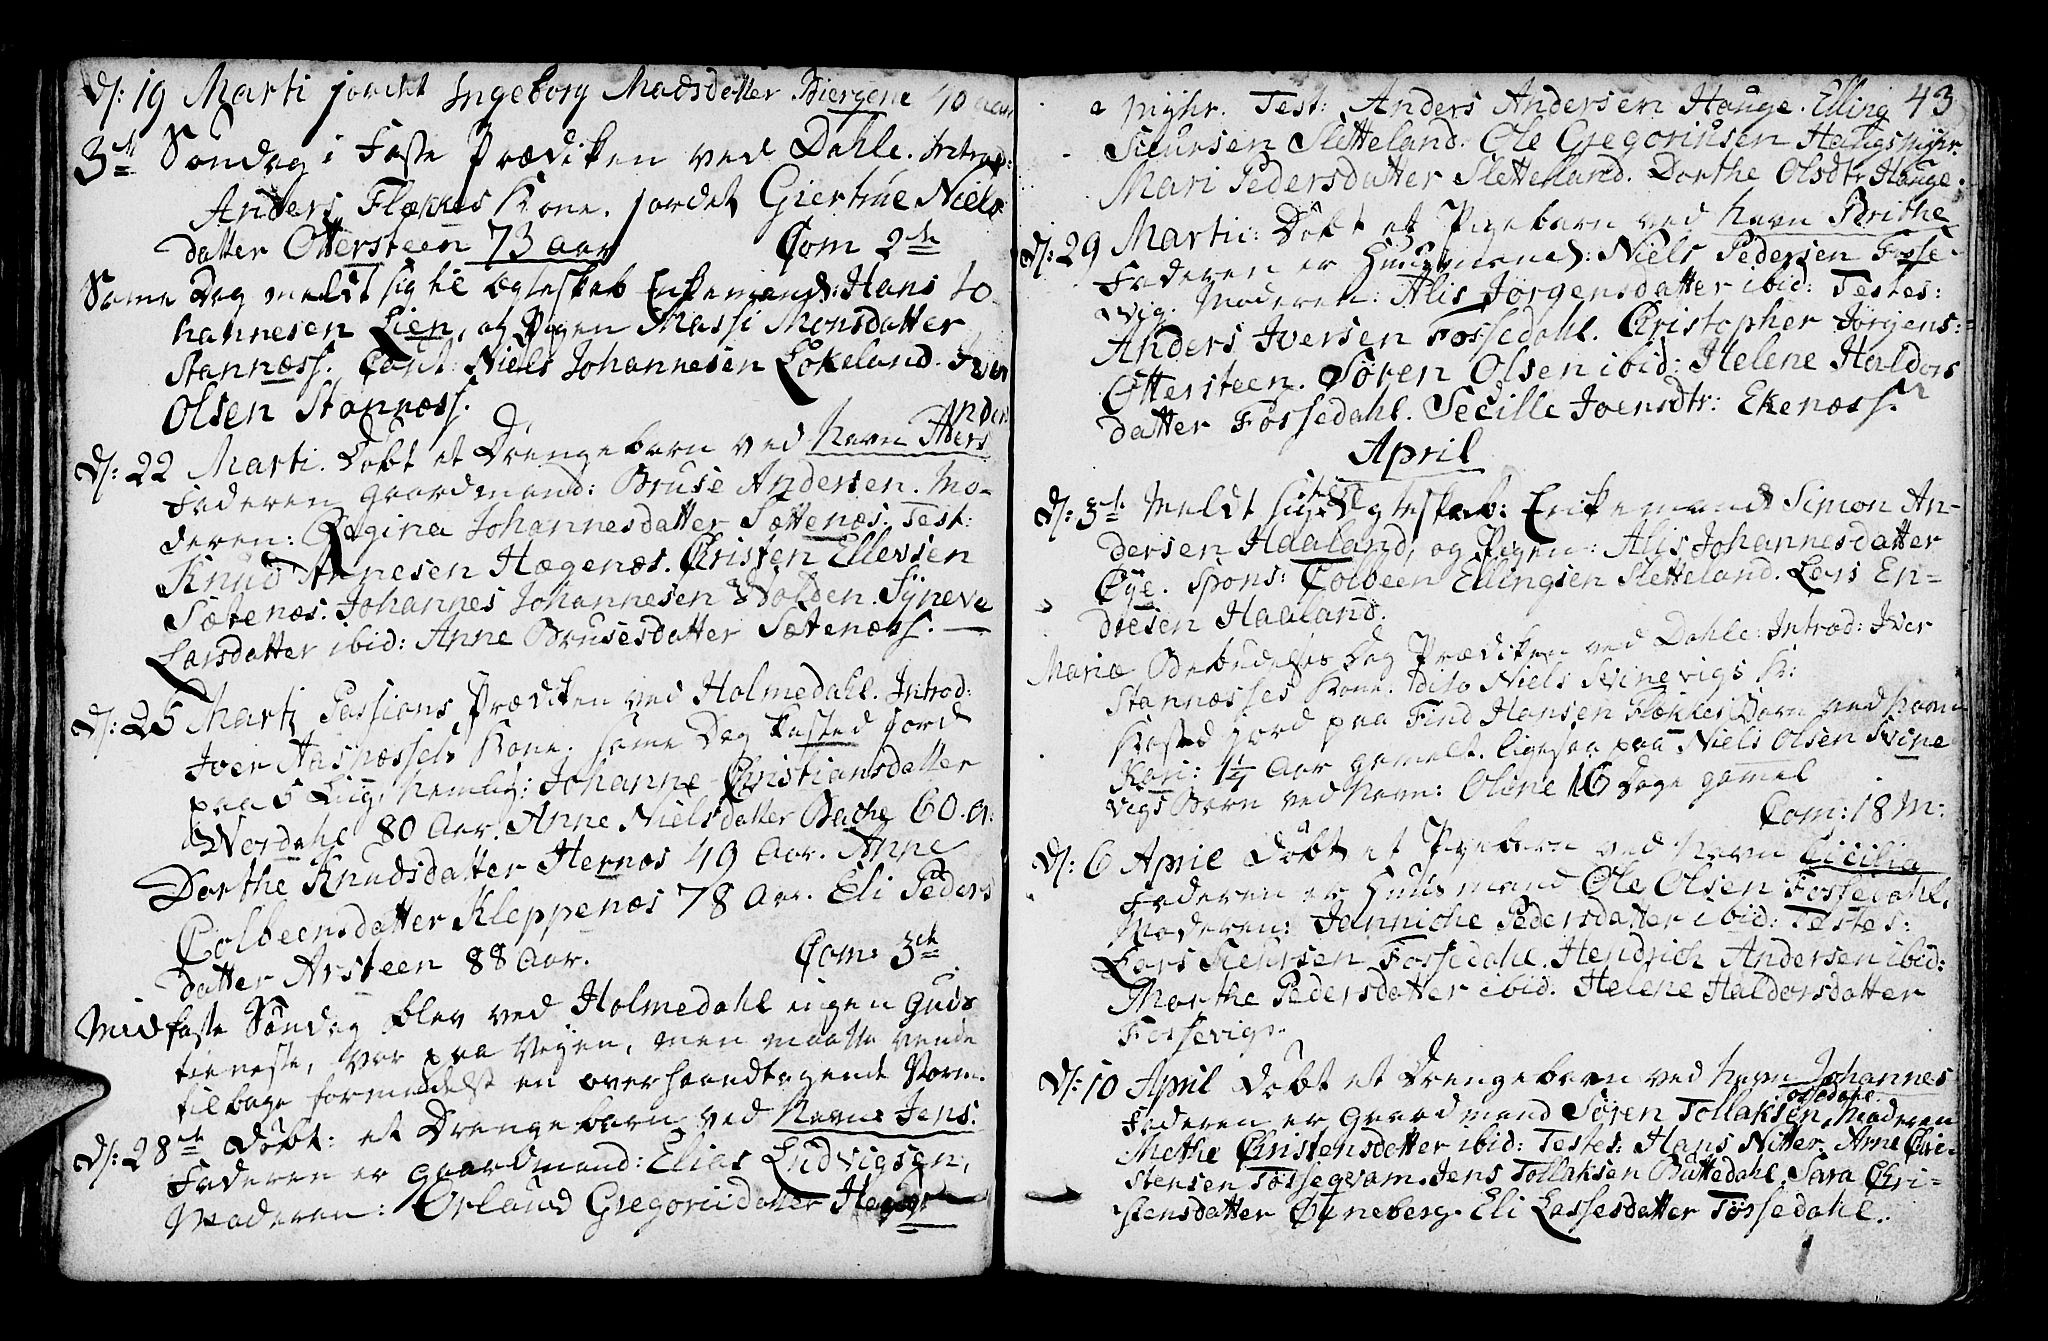 Ds: 19 Marti jordet Ingeborg Madsdatter Biergene 40 aar,
3de Søndag i Faste Prædiken ved Dahle. Introd:
Anders Flækkes Kone. jordet Giertrue Niels
datter Ottersteen 73 aar Com 2de
Same Dag meldt sig til Egteskab Enkemand: Hans Jo-
hannesen Lien, og Pigen Massi Monsdatter
Stannæss. Caut: Niels Johannesen Løkeland. Iver
Olsen Stannæss.
Ander
Ds: 22 Marti. Døbt et Drengebarn ved Navn
Faderen Gaardmand: Bruse Andersen. Mo-
deren: Regina Johannesdatter Sættenæs. Test:
Knud Annesen Hægenæs. Christen Ellevsen
Sætenæs. Johannes Johannesen Dolden. Syneve
Larsdatter ibid: Anne Brusesdatter Sætenæss.
Ds: 25 Marti Passions Prædiken ved Holmedahl. Introd:
Iver Aasnæssets Kone. same Dag kasted Jord
paa 5 Liig, nemlig: Johanne Christiansdatter
Werdahl 80 Aar. Anne Nielsdatter Bache 60. a:
Dorthe Knudsdatter Hernæs 49 Aar. Anne
Colbeensdatter Kleppenæs 78 Aar. Eli Peders
datter Arsteen 88 Aar. Com: 3de
Midfaste Søndag blev ved Holmedahl ingen Guds
tieneste, var paa Veyen, men maatte vende
tilbage formedelst en overhaandtagende Storm.
Ds: 28de Døbt: et Drengebarn ved Navn Jens.
Faderen er Gaardmand: Elias Ludvigsen,
Moderen: Orland Gregoriidatter
43
Test: Anders Andersen Hauge. Elling
Siursen Sletteland. Ole Gregoriusen
Mari Pedersdatter Sletteland. Dorthe Olsdtr Hauge.
Ds: 29 Martii: Døbt et Pigebarn ved Navn Brithe
Faderen er Huusmand: Niels Pedersen Fosse-
vig. Moderen: Alis Jørgensdatter ibid: Testes:
Anders Iversen Fossedahl. Christopher Jørgens:
Ottersteen. Søren Olsen ibid: Helene Haldors
datter Fossedahl. Secille Joensdtr: Ekenæss.
April
Ds: 3de Meldt sig til Egteskab: Enkemand Simon An-
dersen Haaland, og Pigen: Alis Johannesdatter
Øye. Spons: Colbeen Ellingsen Sletteland. Lars En-
dresen Haaland.
Mariæ Bebudelses Dag Prædiken ved Dahle: Introd: Iver
Stannæsses Kone. dito Niels Svinevigs K:
Kasted Jord paa Find Hansen Flækkes Barn ved Navn
Kari: 1 1/4 Aar gamelt. ligesaa paa Niels Olsen Svine
vigs Barn ved Navn: Oline 16 Dage gamel
Com: 18 M:
Ds: 6 April Døbt et Pigebarn ved Navn Cicilia
Faderen er Huusmand Ole Olsen Fossedahl,
Moderen: Jannicke Pedersdatter ibid: Testes:
Lars Siursen Fossedahl. Hendrich Andersen ibid:
Marthe Pedersdatter ibid. Helene Haldorsdatter
Fossevigs.
Ds: 10 April Døbt et Drengebarn ved Navn Johannes
Tossedahl.
Faderen er Gaardmand Søren Tollaksen, Moderen
Methe Christensdatter ibid: Testes: Hans Nitter. Arne Chri-
stensen Tossegvam. Jens Tollaksen Buttedahl. Sara Chri-
stensdatter Øyneberg. Eli Lassesdatter Tossedahl.